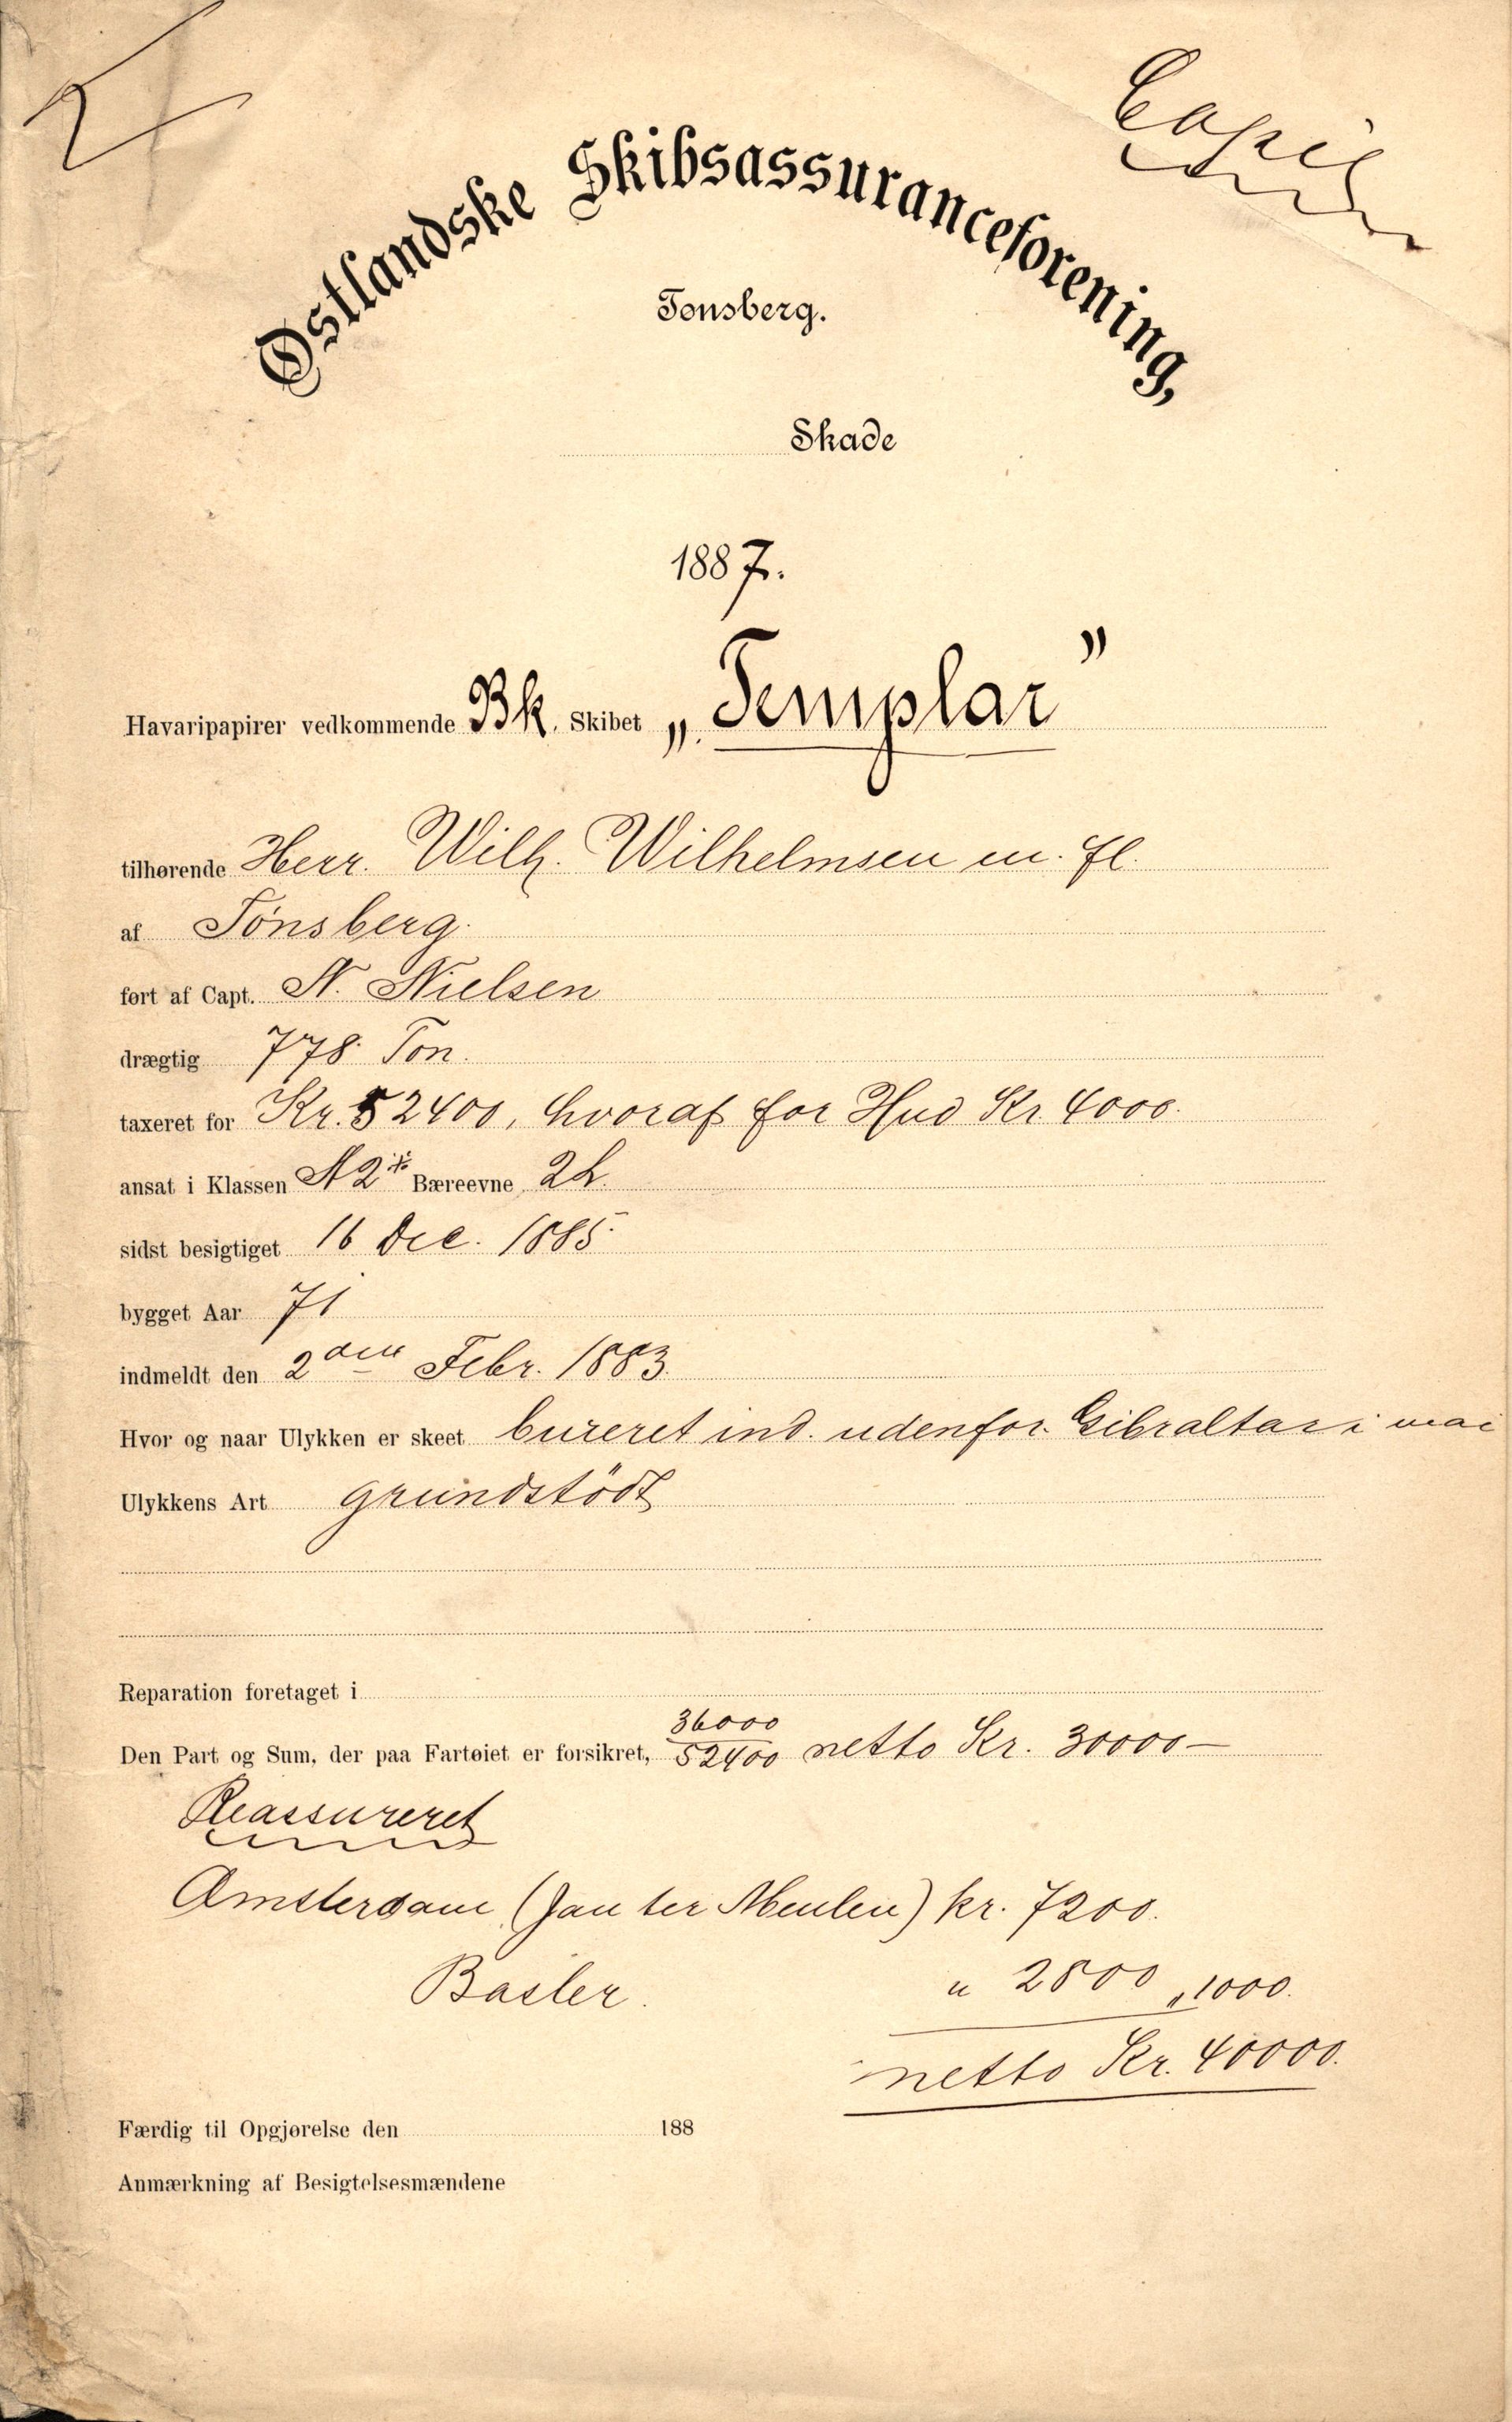 Copie
Østlandske Skibsassuranceforening,
Tønsberg.
Skade
1887.
Havaripapirer vedkommende Bk. Skibet „Templar”
tilhørende Herr. Wilh. Wilhelmsen m. fl.
af Tönsberg.
ført af Capt. N. Nielsen
drægtig 778 Ton.
taxeret for Kr. 52400, hvoraf for Hud Kr. 4000.
ansat i Klassen A 2 Bæreevne 2
sidst besigtiget 16 Dec. 1885
bygget Aar 71
indmeldt den 2den Febr. 1883.
Hvor og naar Ulykken er skeet bugseret ind. udenfor Gibraltar i mai
Ulykkens Art grundstödt
Reparation foretaget i
Den Part og Sum, der paa Fartøiet er forsikret, 36000/52400 netto Kr. 30000 —
Reassureret
Amsterdam (Jan ter Meulen) kr. 7200.
Basler. " 2800 „ 1000.
netto Kr. 40000.
Færdig til Opgjørelse den 188
Anmærkning af Besigtelsesmændene